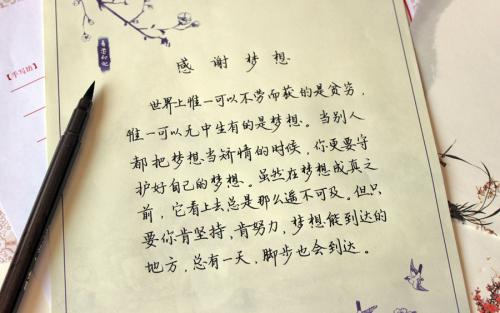 感谢梦想
世界上惟一可以不劳而获的是贫穷,
惟一可以无中生有的是梦想。当别人
都把梦想当矫情的时候,你更要守
护好自己的梦想。虽然在梦想成真之
前,它看上去总是那么遥不可及。但只
要你肯坚持,肯努力,梦想能到达的
地方,总有一天,脚步也会到达。
【手写坊】